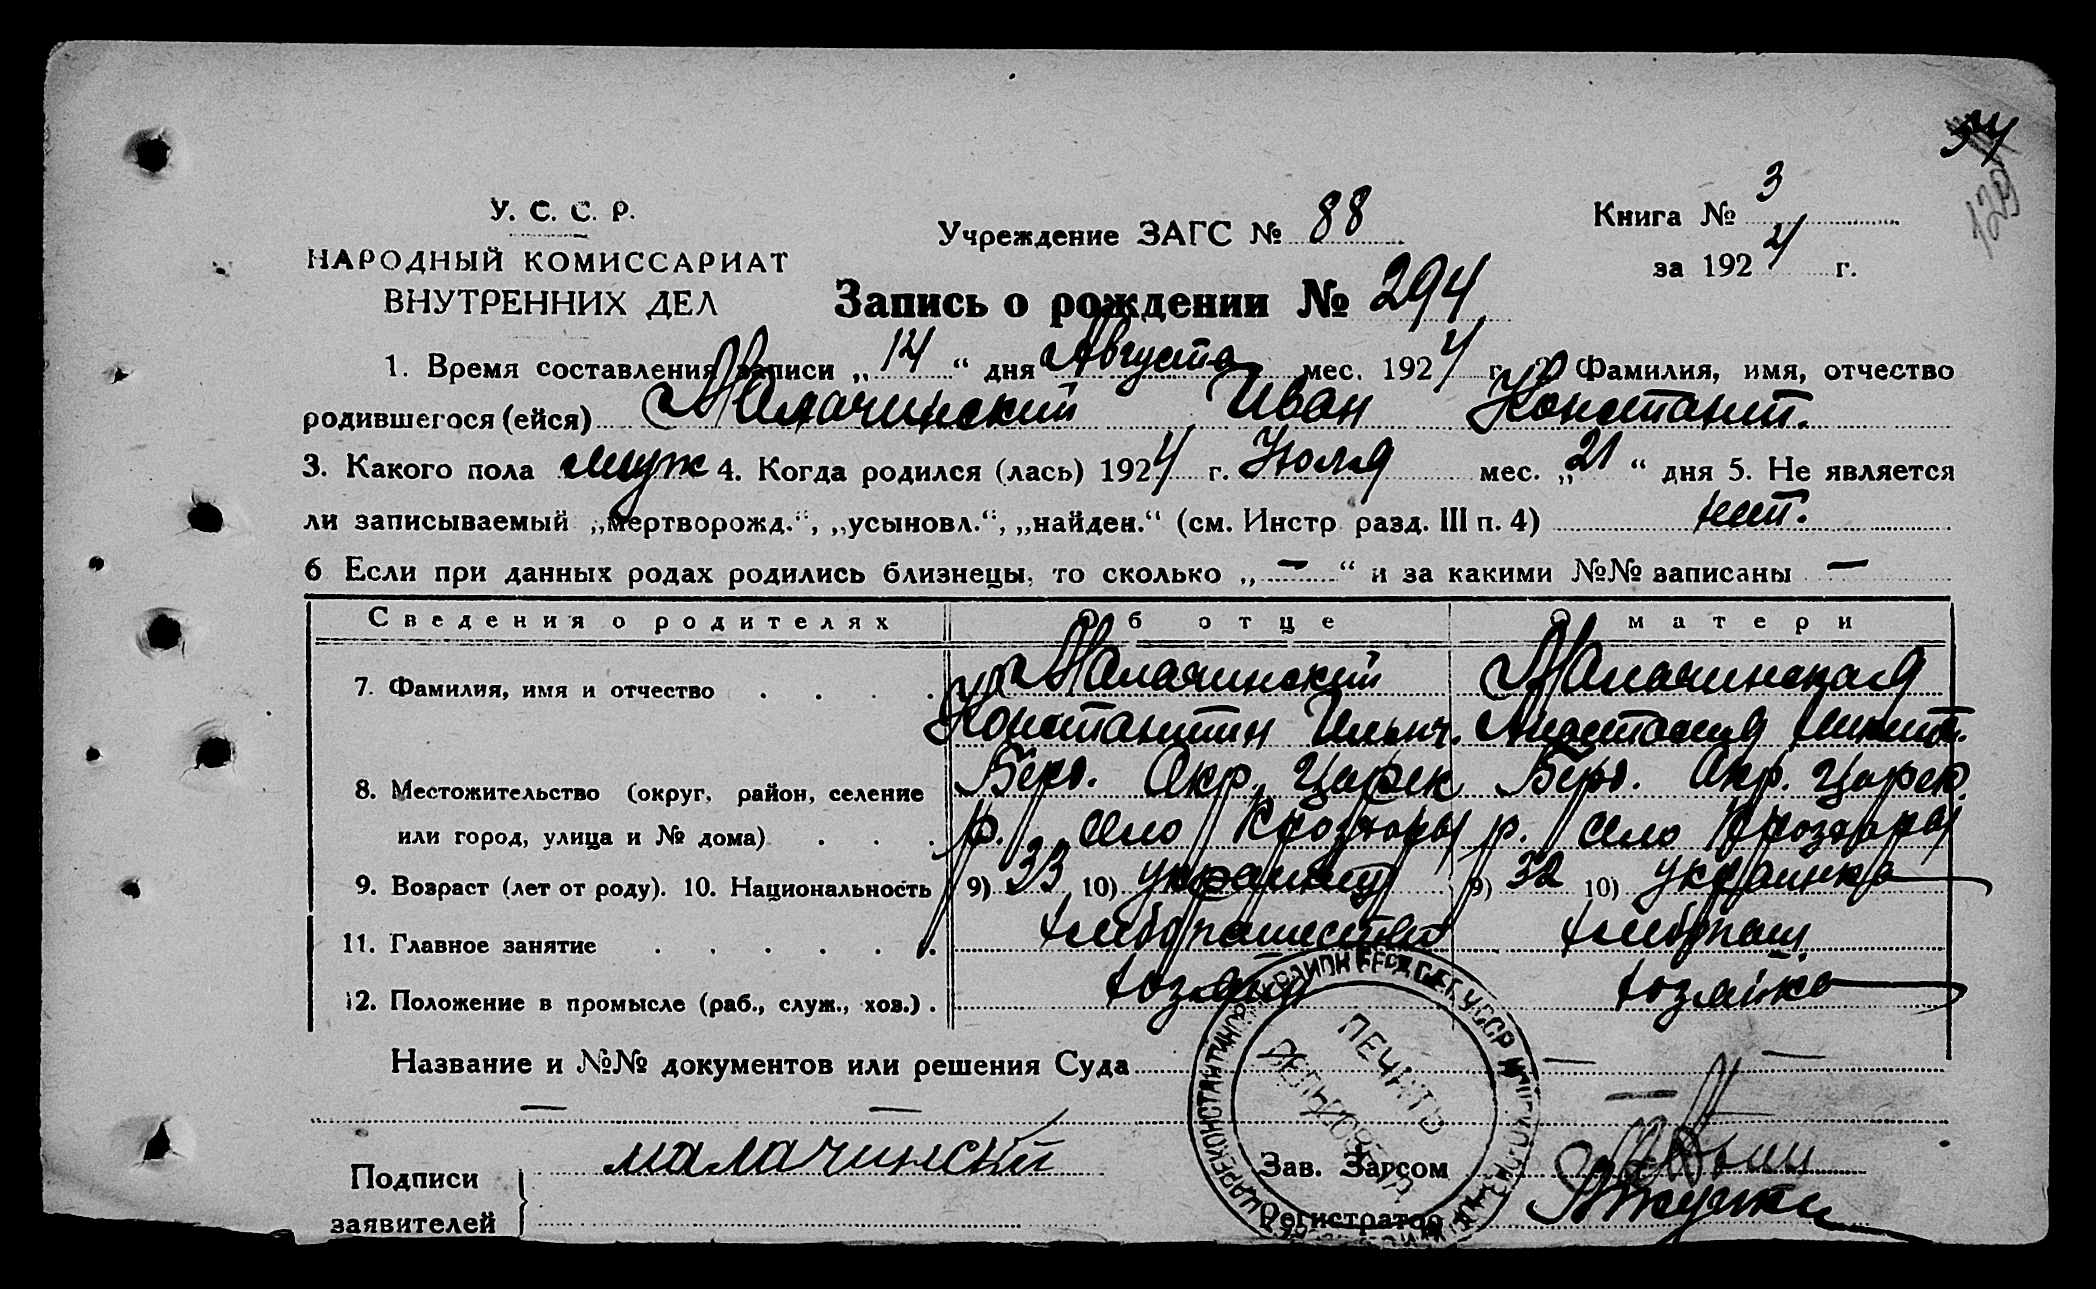 34
129
У. С. С. Р.
НАРОДНЫЙ КОМИССАРИАТ
ВНУТРЕННИХ ДЕЛ
Учреждение ЗАГС № 88
Книга № 3
за 1924 г.
Запись о рождении № 294
1. Время составления записи „14“ дня Августа мес. 1924 г. 2. Фамилия, имя, отчество
родившегося (ейся) Малачинский Иван Константин.
3. Какого пола муж 4. Когда родился (лась) 1924 г. Июля мес. „21“ дня 5. Не является
ли записываемый „мертворожд.“, „усыновл.“, „найден.“ (см. Инстр. разд. III п. 4) нет.
6 Если при данных родах родились близнецы, то сколько „—“ и за какими №№ записаны —
Сведения о родителях Об отце О матери
7. Фамилия, имя и отчество . . . . Малачинский Малачинская
Константин Ильич. Анастасия Никит.
8. Местожительство (округ, район, селение Берд. Окр., Царек Берд. Окр. Царек.
или город, улица и № дома) . . . р. село р. село
9. Возраст (лет от роду). 10. Национальность 9) 33 10) украинец 9) 32 10) украинка
11. Главное занятие . . . . . . хлебопашество хлебопаш.
12. Положение в промысле (раб., служ., хоз.) . хозяин хозяйка
Название и №№ документов или решения Суда — —
— — —
Подписи
заявителей
малачинский
Зав. Загсом
Регистратор
ПЕЧАТЬ